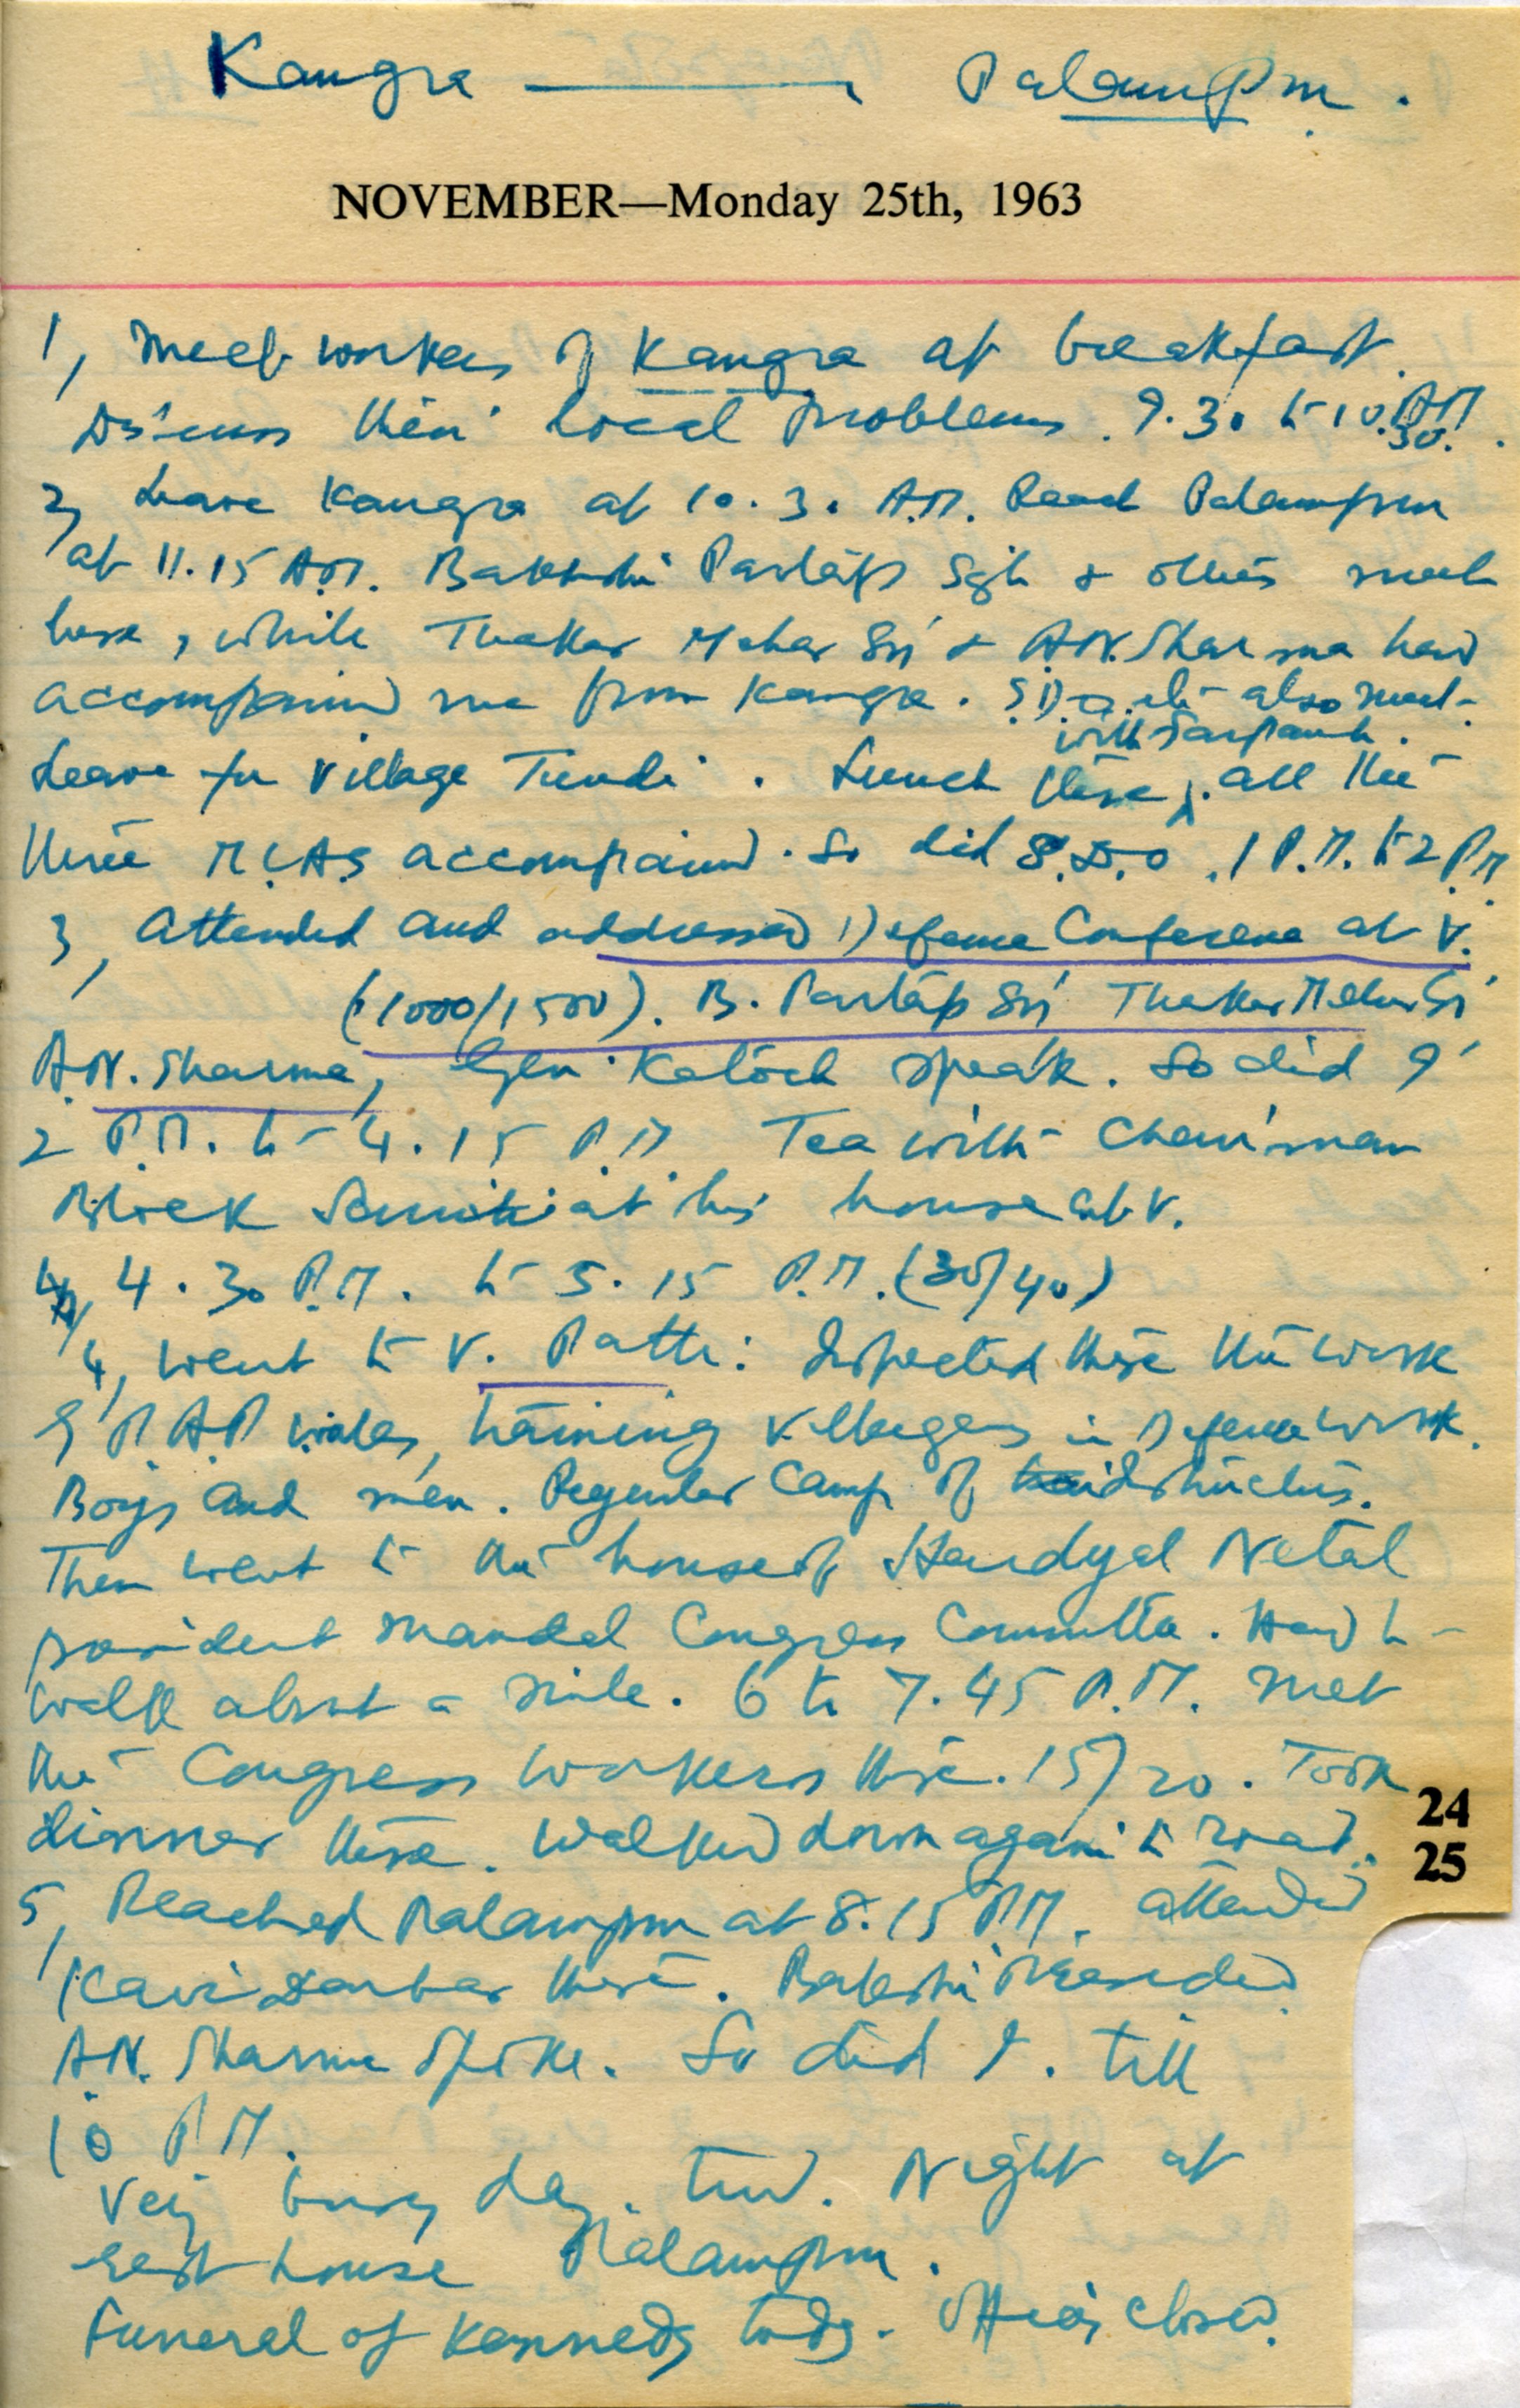 Kangra — Palampur.
NOVEMBER—Monday 25th, 1963
1, Meet workers of Kangra at breakfast.
Discuss their local problems. 9.30 to 10.30 AM.
2, Leave Kangra at 10.30 A.M. Reach Palampur
at 11.15 A.M. Bakhshi Partap Sgh & others meet
here, while Thakar Mehar Sgh & A.N. Sharma had
accompanied me from Kangra. S.D.O. etc also meet.
with Sarpanch.
Leave for Village Tundi. Lunch there. all the
three MLAS accompanied. So did S.D.O. 1 P.M. to 2 P.M
3, Attended and addressed Defence Conference at V.
(1000/1500). B. Partap Sgh Thakar Mehar Sgh
A.N. Sharma, Gen Katoch speak. So did I
2 P.M. to 4.15 P.M. Tea with Chairman
Block Samiti at his house at V.
4, 4.30 P.M. to 5.15 P.M. (30/40)
4, Went to V. Patti: Inspected there the work
of P.A.P training villagers in Defence work.
Boys and men. Regular Camp of instructors.
Then went to the house of Hardyal
president Mandal Congress Committee. Had to
walk about a mile. 6 to 7.45 P.M. Met
the Congress workers there. 15/20. Took
dinner there. Walked down again to road.
24
25
5, Reached Palampur at 8.15 P.M. attended
Kavi Darbar there. Bakshi Presided
A.N. Sharma Spoke. So did I. till
10 P.M.
Very busy day. tired. Night at
rest house Palampur.
Funeral of Kennedy today. Offices closed.